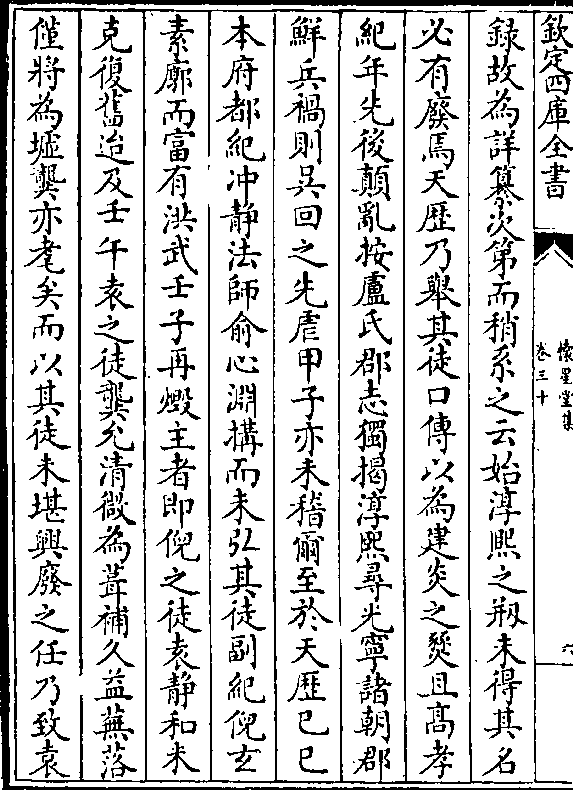 欽定四庫全書
懷星堂集
卷三十
六
録故為詳纂次第而稍系之云始淳熙之剏未得其名
必有廢焉天歴乃舉其徒口傳以為建炎之燹且髙孝
紀年先後顛亂按盧氏郡志獨揭淳熙尋光寧諸朝郡
鮮兵禍則吴回之先虐甲子亦未稽爾至於天歴己巳
本府都紀冲静法師俞心淵搆而未弘其徒副紀倪玄
素廓而富有洪武壬子再燬主者即倪之徒袁静和未
克復舊迨及壬午袁之徒龔允清微為葺補久益蕪落
僅將為墟龔亦耄矣而以其徒未堪興廢之任乃致袁